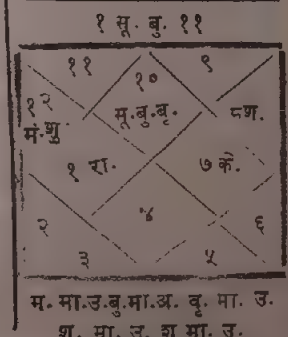 १ सू. बु. ११
११ १० ९
१२ सू.बु.बृ. ८श.
मं.शु
१ रा. ७ के.
२ ४ ६
३ ५
म. मा.उ.बु.मा.अ. वृ. मा. उ.
श. मा. उ. श मा. उ.